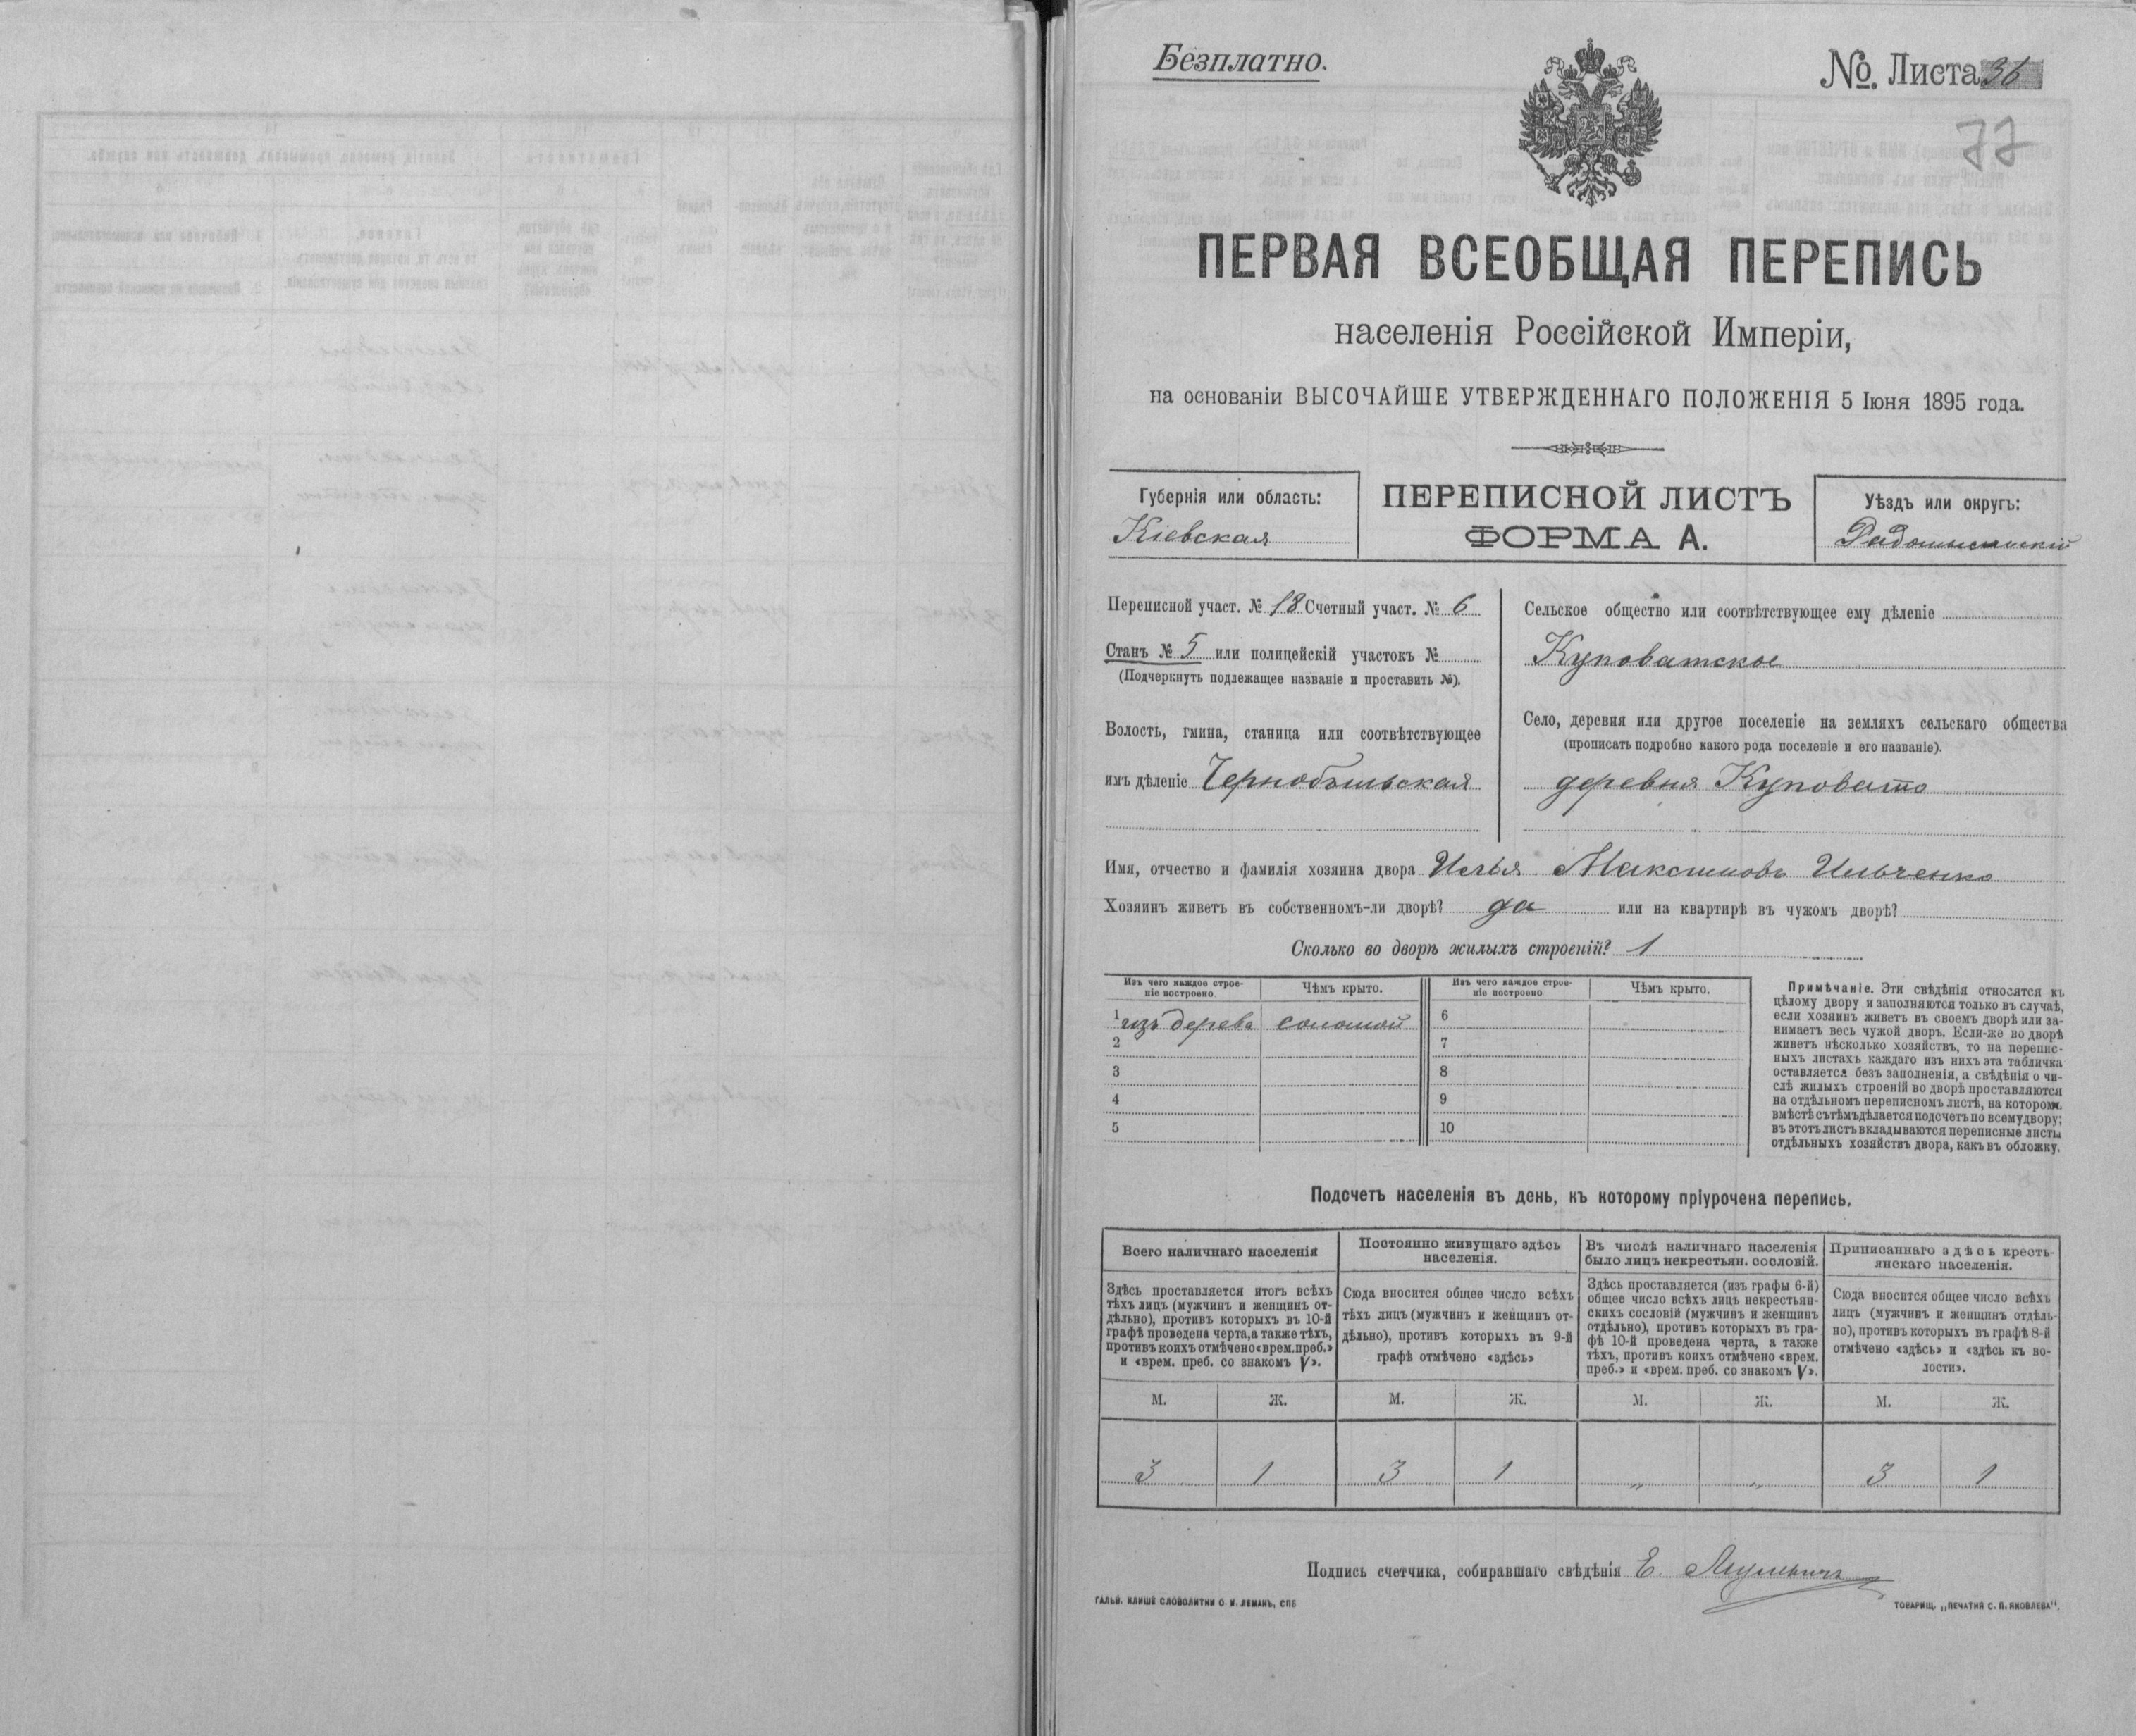 Безплатно.
№. Листа 36
77
ПЕРВАЯ ВСЕОБЩАЯ ПЕРЕПИСЬ
населенія Россійской Имперіи,
на основаніи ВЫСОЧАЙШЕ УТВЕРЖДЕННАГО ПОЛОЖЕНІЯ 5 Іюня 1895 года.
Губернія или область:
Кіевская
ПЕРЕПИСНОЙ ЛИСТЪ
ФОРМА А.
Уѣздъ или округъ:
Радомысльскій
Переписной участ. № 18 Счетный участ. № 6
Станъ № 5 или полицейскій участокъ №
(Подчеркнуть подлежащее названіе и проставить №).
Волость, гмина, станица или соотвѣтствующее
имъ дѣленіе Чернобыльская
Сельское общество или соотвѣтствующее ему дѣленіе
Куповатское
Село, деревня или другое поселеніе на земляхъ сельскаго общества
(прописать подробно какого рода поселеніе и его названіе).
деревня Куповато
Имя, отчество и фамилія хозяина двора Илья Максимовъ Ильченко
Хозяинъ живетъ въ собственномъ-ли дворѣ? да или на квартирѣ въ чужомъ дворѣ?
Сколько во дворѣ жилыхъ строеній? 1
Изъ чего каждое строе-
ніе построено
Чѣмъ крыто.
Изъ чего каждое строе-
ніе построено
Чѣмъ крыто.
1 изъ дерева соломой
2
3
4
5
6
7
8
9
10
Примѣчаніе. Эти свѣдѣнія относятся къ
цѣлому двору и заполняются только въ случаѣ,
если хозяинъ живетъ въ своемъ дворѣ или за-
нимаетъ весь чужой дворъ. Если-же во дворѣ
живетъ нѣсколько хозяйствъ, то на перепис-
ныхъ листахъ каждаго изъ нихъ эта табличка
оставляется безъ заполненія, а свѣдѣнія о чи-
слѣ жилыхъ строеній во дворѣ проставляются
на отдѣльномъ переписномъ листѣ, на которомъ
вмѣстѣ съ тѣмъ дѣлается подсчетъ по всему двору;
въ этотъ листъ вкладываются переписные листы
отдѣльныхъ хозяйствъ двора, какъ въ обложку.
Подсчетъ населенія въ день, къ которому пріурочена перепись.
Всего наличнаго населенія
Здѣсь проставляется итогъ всѣхъ
тѣхъ лицъ (мужчинъ и женщинъ от-
дѣльно), противъ которыхъ въ 10-й
графѣ проведена черта, а также тѣхъ,
противъ коихъ отмѣчено «врем. преб.»
и «врем. преб. со знакомъ V».
Постоянно живущаго здѣсь
населенія.
Сюда вносится общее число всѣхъ
тѣхъ лицъ (мужчинъ и женщинъ от-
дѣльно), противъ которыхъ въ 9-й
графѣ отмѣчено «здѣсь»
Въ числѣ наличнаго населенія
было лицъ некрестьян. сословій.
Здѣсь проставляется (изъ графы 6-й)
общее число всѣхъ лицъ некрестьян-
скихъ сословій (мужчинъ и женщинъ
отдѣльно), противъ которыхъ въ гра-
фѣ 10-й проведена черта, а также
тѣхъ, противъ коихъ отмѣчено «врем.
преб.» и «врем. преб. со знакомъ V».
Приписаннаго здѣсь кресть-
янскаго населенія.
Сюда вносится общее число всѣхъ
лицъ (мужчинъ и женщинъ отдѣль-
но), противъ которыхъ въ графѣ 8-й
отмѣчено «здѣсь» и «здѣсь къ во-
лости».
М. Ж. М. Ж. М. Ж. М. Ж.
3 1 3 1 " " 3 1
Подпись счетчика, собиравшаго свѣдѣнія Е.
ГАЛЬВ. КЛИШЕ СЛОВОЛИТНИ О. И. ЛЕМАНЪ, СПБ
ТОВАРИЩ. „ПЕЧАТНЯ С. П. ЯКОВЛЕВА".